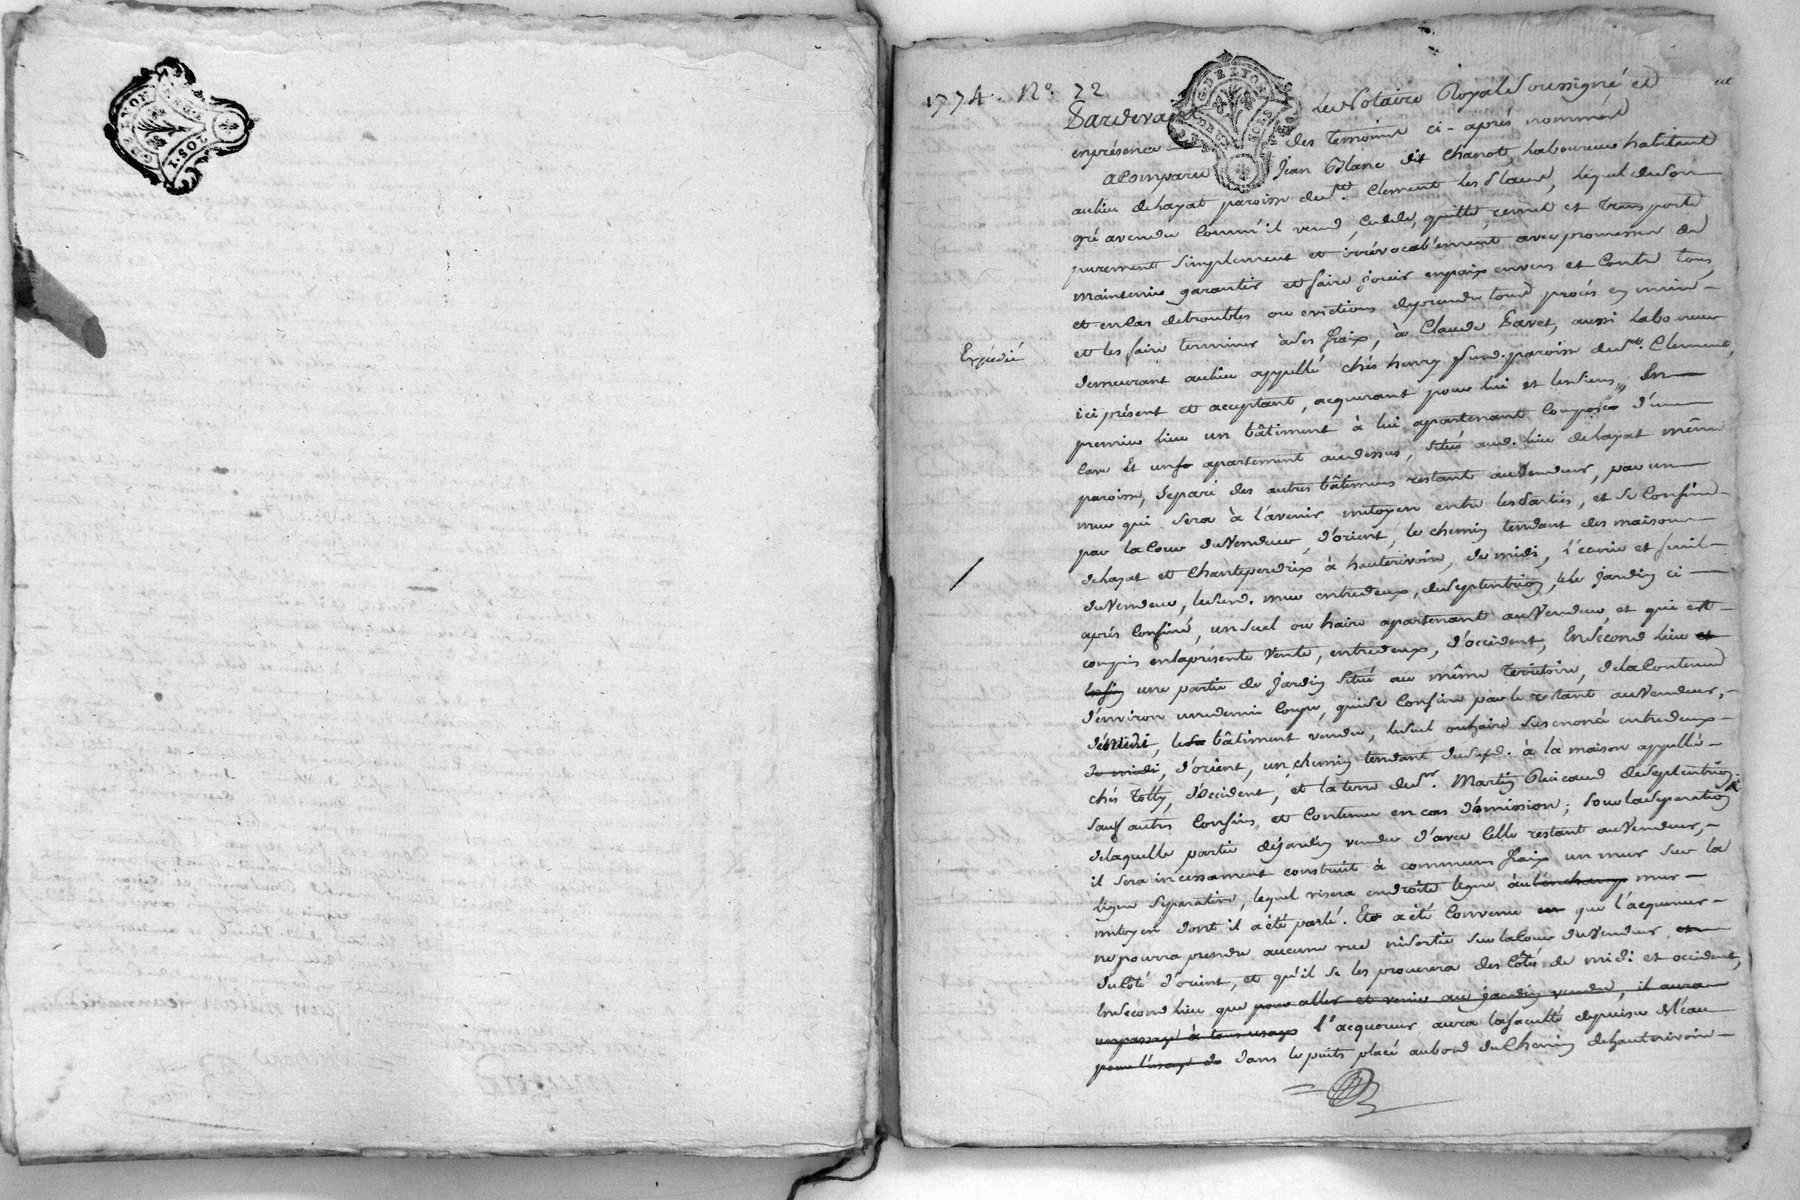 GEN. DE LYON
1. SOL
1774. N.° 72
GEN. DE LYON
DEUX SOLS
Pardevant Le Notaire Royal Soussigné et
enprésence des Temoins ci-aprés nommés
a Comparu Jean Blanc dit Chanot, Laboureur habitant
aulieu delayat paroisse de St. Clement Les Places, lequel deson
gré avendu Comm'il vend, Cedde, quitte, remet et transporte
purement simplement et irrévocab'ement avec promesse de
maintenir garantir et faire joüir enpaix envers et Contre tous,
et encas detroubles ou evictions deprendre tous procés en main
et les faire terminer àses fraix, à Claude Pavet, aussi Laboureur
Expédié
demeurant aulieu appellé chés henry susd. paroisse de St. Clement,
ici présent et acceptant, acquerant pour lui et lessiens, En
premier lieu un bâtiment à lui apartenant Composé d'une
Cave et un apartement audessus, situé aud. lieu delayat même
paroisse, separé des autres bâtimens restant auVendeur, par un
mur qui sera à l'avenir mitoyen entre lesParties, et se Confine
par laCour duVendeur, d'orient, le chemin tendant des maisons
delayat et Chanteperdrix à hauterivoire, de midi, l'ecurie et fenil
duVendeur, lesusd. mur entredeux, deseptentrion, et le jardin ci
aprés Confiné, unsuel ou haire apartenant auVendeur, et qui est
compris enlaprésente Vente, entredeux, d'occident, Ensecond lieu et
enfin une partie de jardin situé au même Territoire, delaContenue
d'environ unedemi Coupe, quise Confine par le restant auVendeur,
demidi, le bâtiment vendu, lesuel ouhaire susenoncé entredeux
de midi, d'orient, un chemin tendant dususd. à la maison appellée
chés Tolly, d'occident, et laterre du Sr. Martin Ricaud deseptentrion,
sauf autres Confins et Contenue en cas d'omission; Pour laseparation
delaquelle partie dejardin vendue d'avec Celle restant auVendeur,
il sera incessament construit à communs fraix un mur sur la
ligne séparative, lequel visera endroite ligne au mur
mitoyen dont il aété parlé. Et a été Convenu que l'acquereur
ne pourra prendre aucune vue nisortie sur laCour duVendeur, et
ducôté d'orient, et qu'il se les procurera des Côtés de midi et occident,
Ensecond lieu que pour aller et venir au jardin vendu, il aura
unpassage à tous usages l'acquereur aura lafaculté depuiser de l'eau
pour l'usage de dans le puits placé aubord du Chemin dehauterivoire